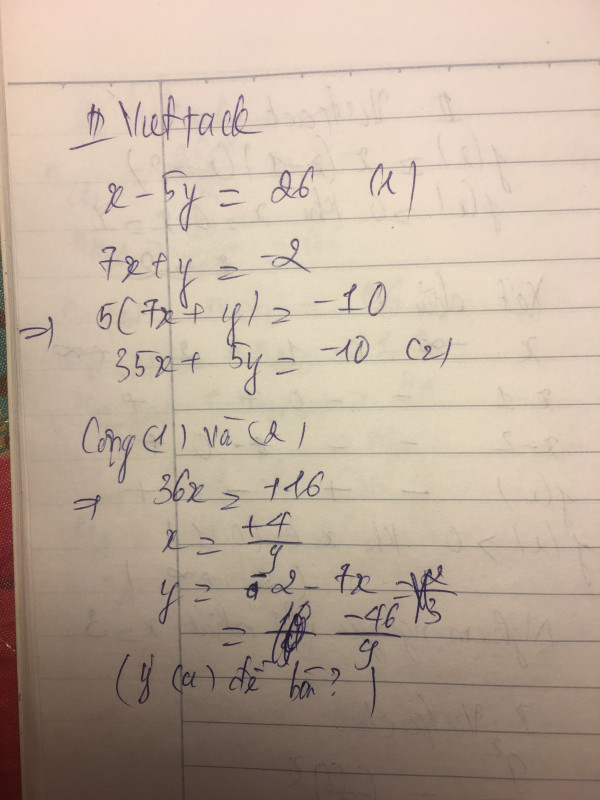 x - 5y = 26 (1)
7x + y = -2
⇒ 5(7x + y) = -10
35x + 5y = -10 (2)
Cộng (1) và (2)
⇒ 36x = +16
x = +4/9
y = -2 - 7x
= -46/9
(Ý (a) đề bàn?)